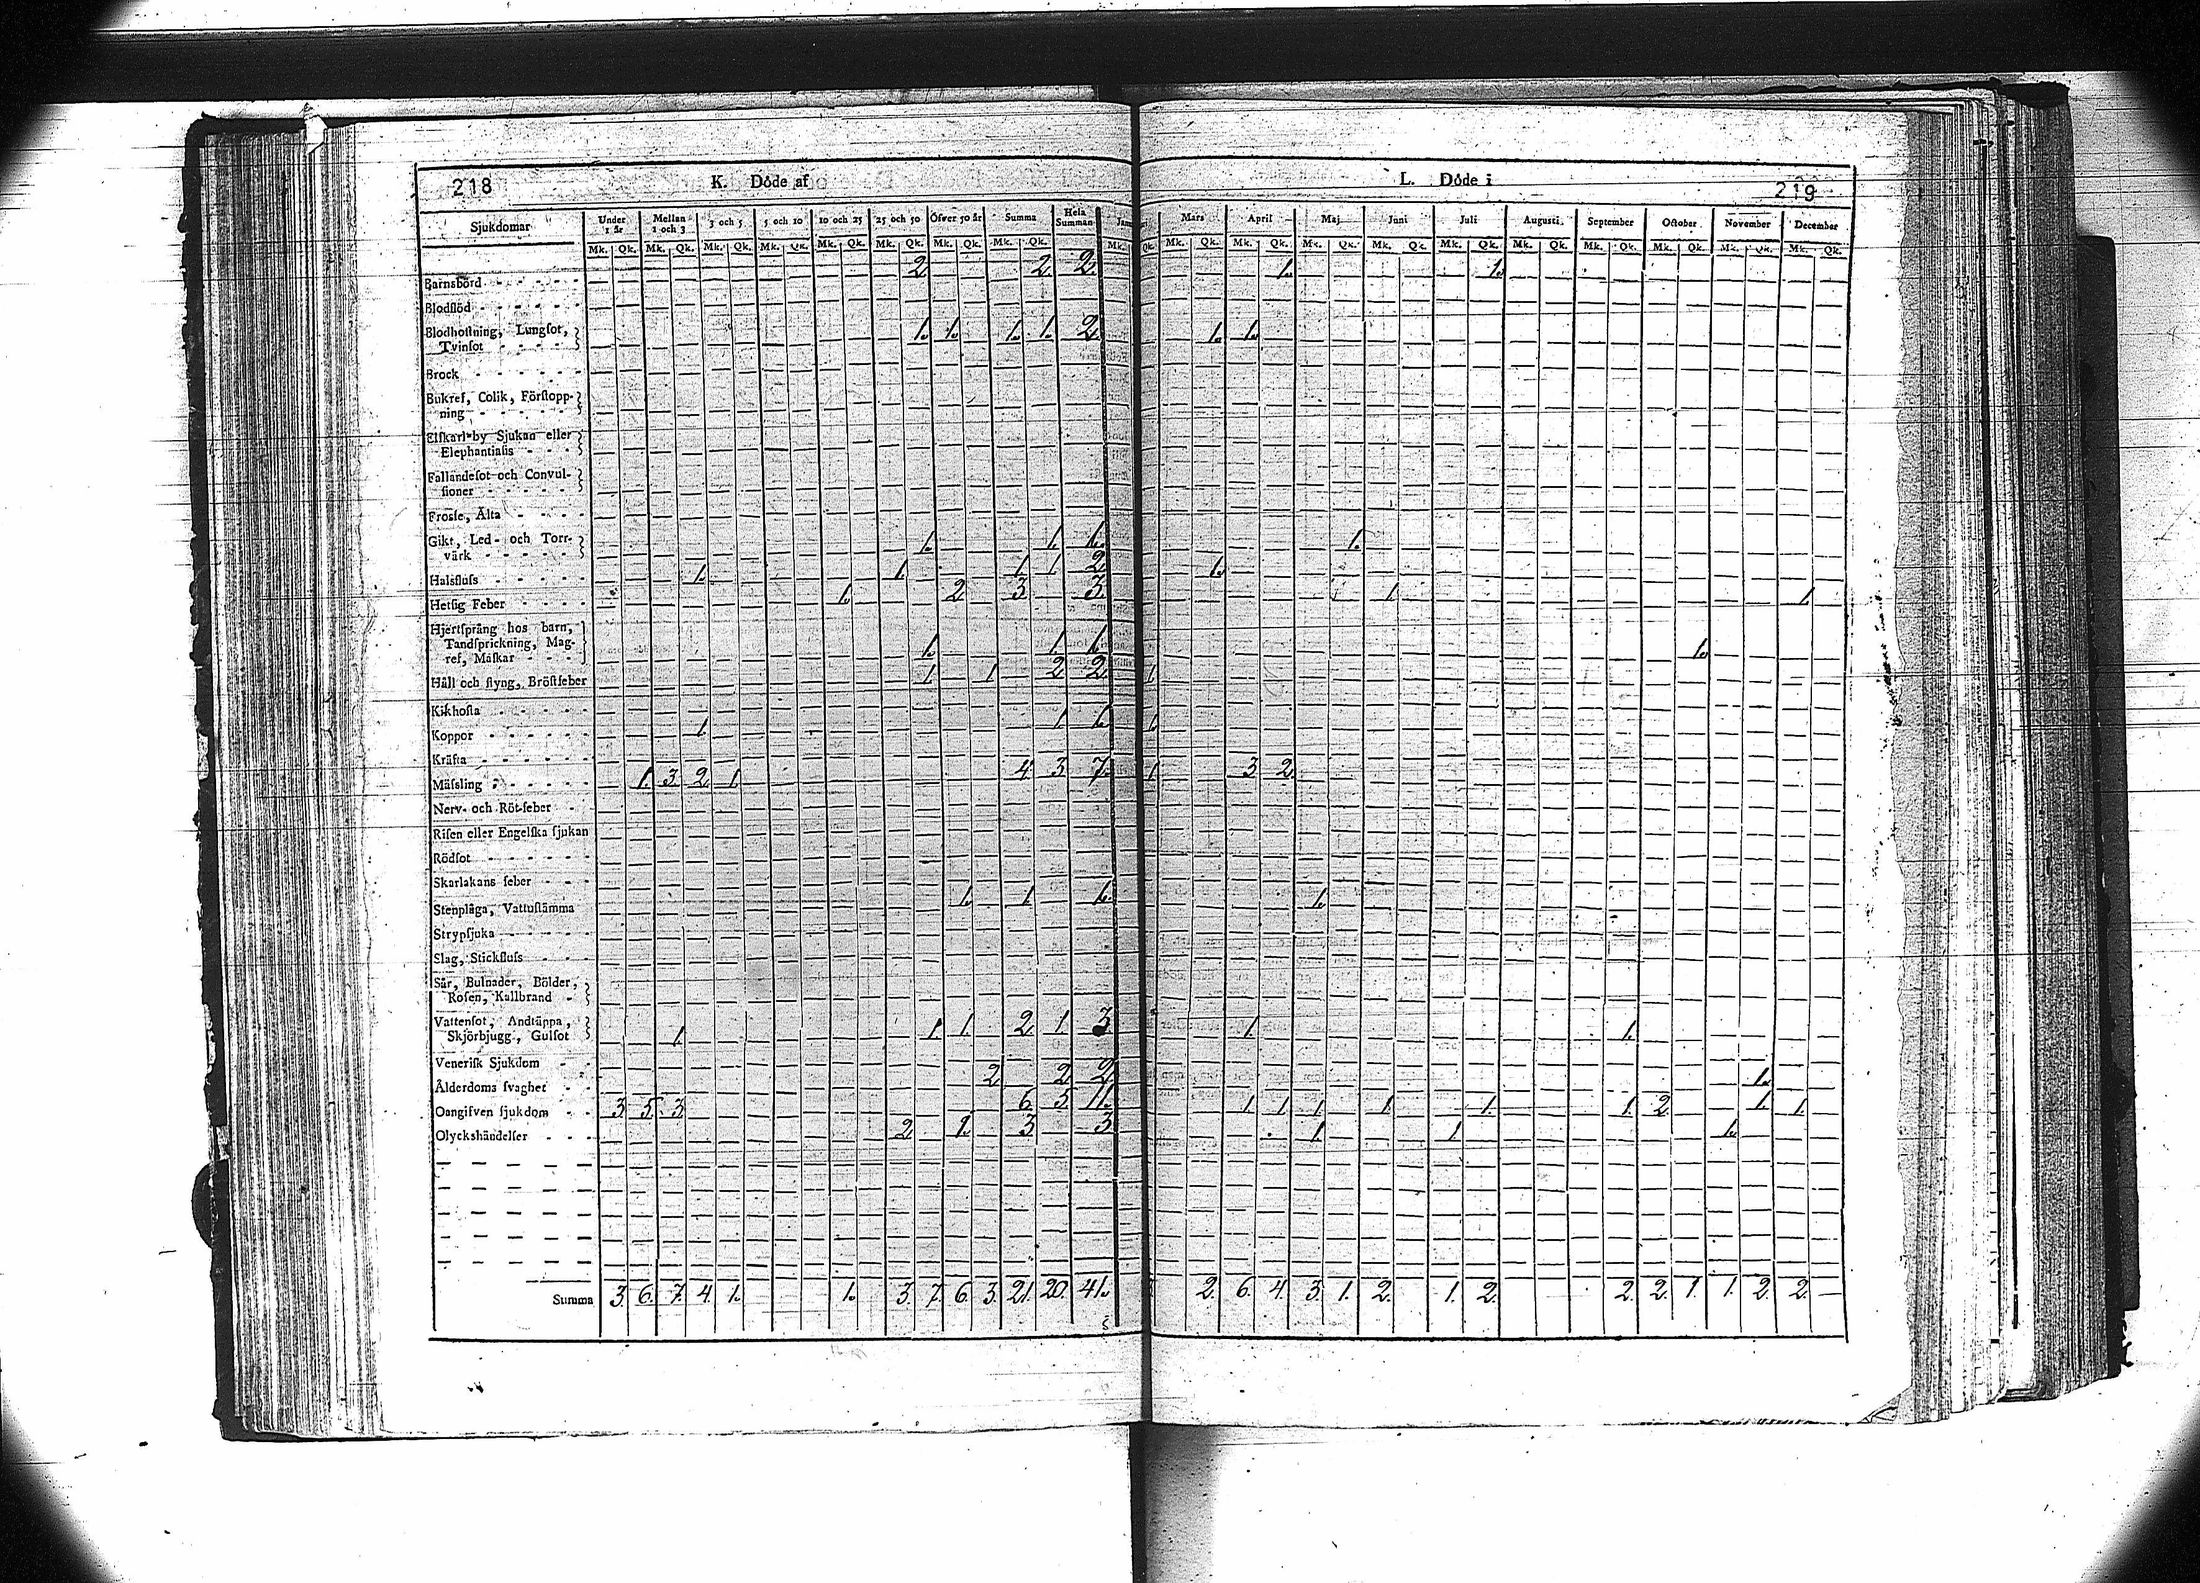 218 K. Döde af
Sjukdomar Under 1 år Mellan 1 och 3 3 och 5 5 och 10 10 och 25 25 och 50 Öfver 50 år Summa Hela Summan
Mk. Qk. Mk. Qk. Mk. Qk. Mk. Qk. Mk. Qk. Mk. Qk. Mk. Qk. Mk. Qk.
Barnsbörd 2. 2. 2.
Blodflöd
Blodhoſtning, Lungſot,
Tvinſot 1. 1. 1. 1. 2.
Brock
Bukref, Colik, Förſtopp-
ning
Elſkarl-by Sjukan eller
Elephantiaſis
Fallandeſot och Convul-
ſioner
Froſſe, Älta
Gikt, Led- och Torr-
värk 1. 1. 1.
Halsfluſs 1. 1. 1 1 2
Hetſig Feber 1. 2 3. 3.
Hjertſprång hos barn,
Tandſprickning, Mag-
ref, Maſkar 1. 1. 1.
Håll och ſtyng, Bröſtfeber 1 1 2 2.
Kikhoſta
Koppor 1 1 1.
Kräfta
Mäſsling 1. 3. 2. 1. 4. 3 7.
Nerv- och Röt-feber
Riſen eller Engelſka ſjukan
Rödſot
Skarlakans feber
Stenplåga, Vattuſtämma 1. 1 1.
Strypſjuka
Slag, Stickfluſs
Sår, Bulnader, Bölder,
Roſen, Kallbrand
Vattenſot, Andtäppa,
Skjörbjugg, Gulſot 1. 1. 1. 2. 1 3
Veneriſk Sjukdom
Ålderdoms ſvaghet 2. 2. 2.
Oangifven ſjukdom 3. 5. 3. 6. 5. 11.
Olyckshändelſer 2. 1. 3 3
Summa 3. 6. 7. 4. 1. 1. 3. 7. 6. 3. 21. 20. 41.
L. Döde i 219
Mars April Maj Juni Juli Auguſti September October November December
Qk. Mk. Qk. Mk. Qk. Mk. Qk. Mk. Qk. Mk. Qk. Mk. Qk. Mk. Qk. Mk. Qk. Mk. Qk. Mk. Qk.
1. 1.
1. 1.
1.
1.
1. 1
1.
1.
1.
1 3 2.
1.
1. 1.
1.
1 1 1 1. 1. 1. 2. 1. 1.
1. 1. 1.
2. 6. 4. 3. 1. 2. 1. 2. 2. 2. 1. 1. 2. 2. —